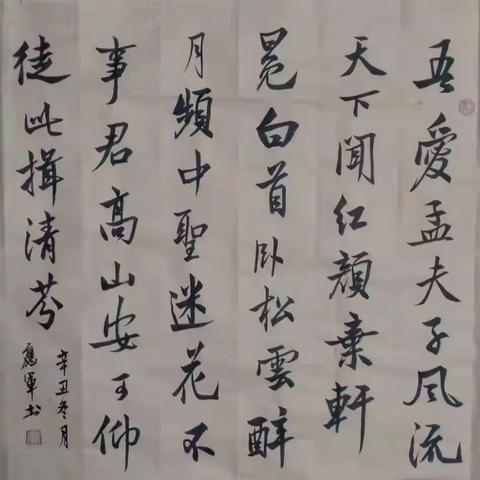 吾愛孟夫子风流
天下聞红顔棄軒
冕白首卧松雲醉
月頻中聖迷花不
事君高山安可仰
徒此揖清芬
辛丑冬月
應軍书